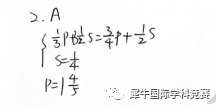 2. A
{ 1/3 P + 1/2 S = 3/4 P + 1/2 S
S = 1/4
P = 1 4/5
犀牛国际学科竞赛